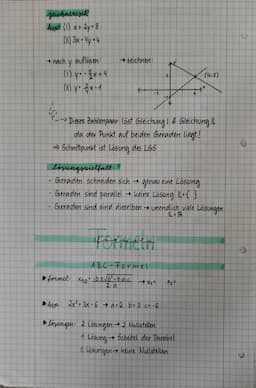 zeichnerisch
Bsp: (I) x + 2y = 8
(II) 3x - 4y = 4
→ nach y auflösen: → zeichnen:
(I) y = -½x + 4
(II) y = ¾x - 1
(4;2)
→ Dieses Zahlenpaar löst Gleichung I & Gleichung II,
da der Punkt auf beiden Geraden liegt!
⇒ Schnittpunkt ist Lösung des LGS
Lösungsvielfalt
- Geraden schneiden sich → genau eine Lösung
- Geraden sind parallel → keine Lösung L = { }
- Geraden sind und dieselben → unendlich viele Lösungen
Formeln
ABC-Formel
▶ Formel: x₁,₂ = -b ± √b² - 4·a·c / 2·a → x₁= x₂=
▶ Bsp: 2x² + 3x - 6 → a = 2 b = 3 c = -6
▶ Lösungen: 2 Lösungen → 2 Nullstellen
1 Lösung → Scheitel der Parabel
0 Lösungen → keine Nullstellen